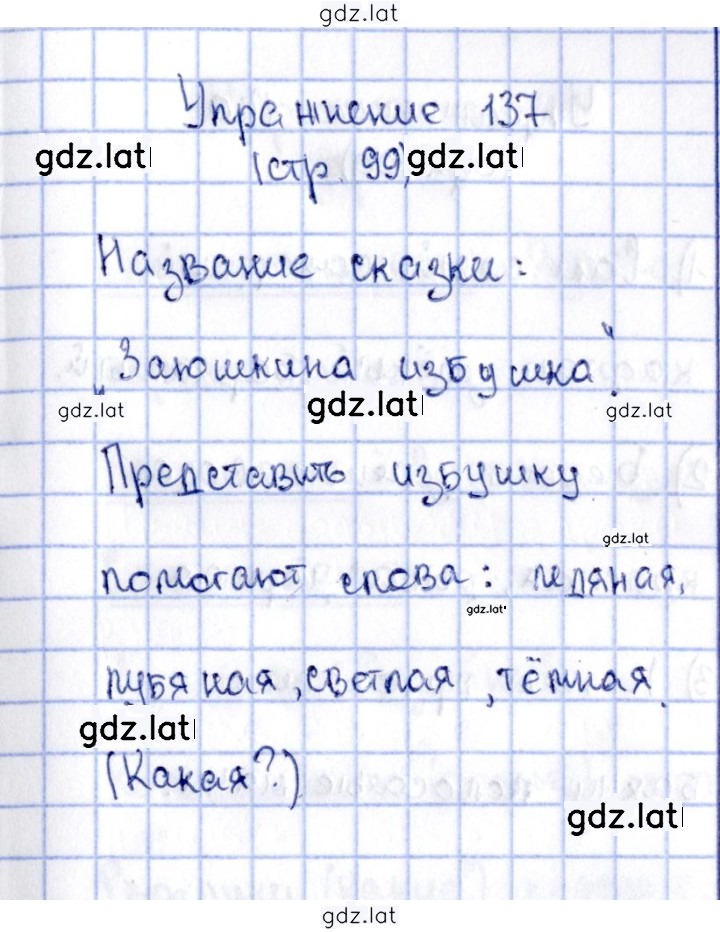 gdz.lat
Упражнение 137
gdz.lat (стр. 99) gdz.lat
Название сказки:
„Заюшкина избушка“.
gdz.lat gdz.lat gdz.lat
Представить избушку
gdz.lat
помогают слова: ледяная,
gdz.lat
лубяная, светлая, тёмная.
gdz.lat
(Какая?)
gdz.lat
gdz.lat